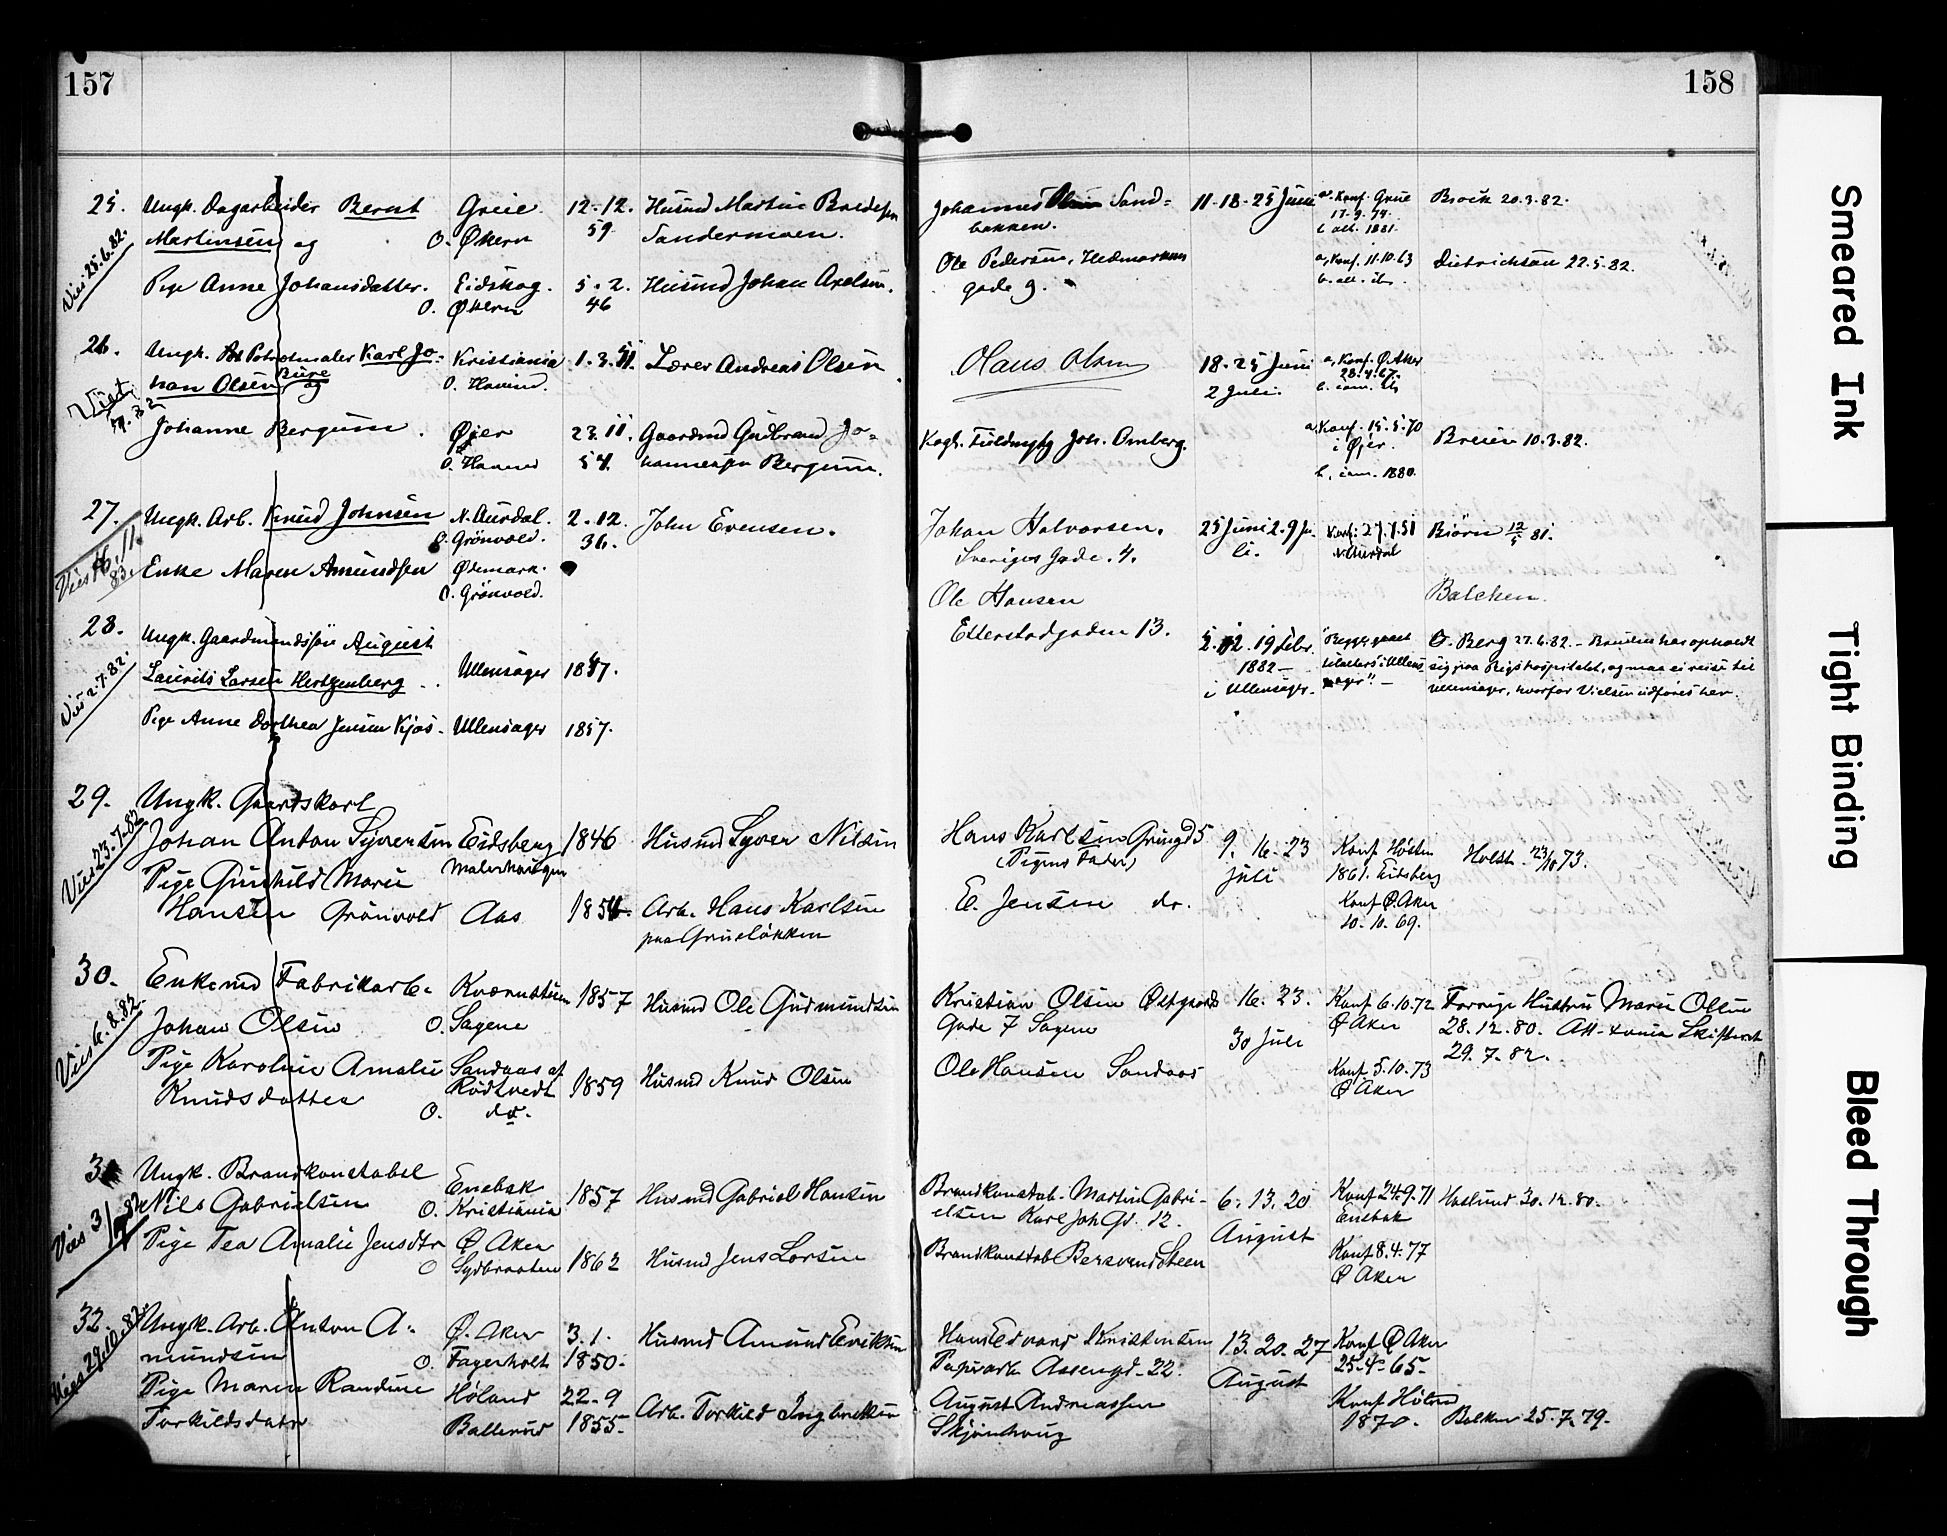 157
158
25. Ungk. Dagarbeider Bernt Greie. 12-12. Husmd Martin Bredesen Johannes Sand= 11-18-25 Juni a. Konf. Grue Brock 20.3.82.
Martinsen og O. Økern 59 Sandermoen. bakken. 17.9.74.
b. att. 1881.
Vies 25.6.82.
Ole Pedersen, Hedmarkens a, Konf. 11.10.63 Dietrichson 22.5.82.
Pige Anne Johansdatter. Eidskog. 5-2. Husmd Johan Axelsen. gade 9. b. att. ibs.
O. Økern 46
26. Ungk. Potrætmaler Karl Jo- Kristiania 1.3.51. Lærer Andreas Olsen Olaus Olsen 18.25 Juni a, Konf. Ø. Aker
han Olsen Bure og O. Havind. 2 Juli. 28.4.67.
Viet 9.7.82
Johanne Bergum. Øjer 23.11. Gaardmd Gudbrand Jo- Joh. Omberg. a, Konf. 15.5.70 Breien 10.3.82.
O. Havind 54. hannessen Bergum. i Øjer.
b, 1880.
27. Ungk. Arb. Knud Johnsen N. Aurdal. 2-12. John Evensen. Johan Halvorsen. 25 Juni 2.9 Ju- Konf: 27.7.51 Biørn 12/5 81.
O. Grönvold. 36. Sveriges Gade. 4. li. N Aurdal
Vies 16.11.83.
Enke Maren Amundsen Ødemark.
O. Grönvold. Ole Hansen Balchen.
28. Etterstadgaden 13.
Ungk. Gaardmandssøn August 5.12.19 Febr. "Begge gaaet O. Berg 27.6.82. - Bruden har opholdt
Laurits Larsen Hertzenberg Ullensager 1857. 1882 - tilalters i Ullens sig paa Rigshospitalet, og maa ei reise til
i Ullensager. ager" - Ullensager, hvorfor Vielsen udføres her.
Vies 2.7.82.
Pige Anne Dorthea Jensen Kjos - Ullensager 1857.
29. Ungk. Gaardskarl
Johan Anton Syversen Eidsberg 1846 Husmd Syver Nilsen Hans Karlsen Grüngd 5 9. 16. 23 Konf Hølen Holst 73.
(Pigens Fader) Juli 1861. Eidsberg
Vies 23.7.82
Pige Gunhild Marie
Hansen Grönvold Aas 1854. Arb. Hans Karlsen E. Jensen do. Konf Ø. Aker
paa Grüneløkken 10.10.69.
30. Enkemd Fabrikarb. Kværnstuen 1857 Husmd Ole Gudmundsen Kristian Olsen Østgaards 16. 23. Konf 6.10.72 Forrige Hustru Marie Olsen
Johan Olsen O. Sagene Gade 7 Sagene 30 Juli Ø Aker 28.12.80. Att- fra Skifteret
29.7.82.
Vies 6.8.82
Pige Karoline Amalie Sandaas af 1859 Husmd Knud Olsen Ole Hansen Sandaas Konf 5.10.73
Knudsdatter Rödtvedt Ø Aker
O. do.
31 Ungk. Brandkonstabel Enebak 1857 Husmd Gabriel Hansen Brandkonstab. Martin Gabri- 6. 13. 20 Konf 24.9.71 Haslund 30.12.80.
Nils Gabrielsen O. Kristiania elsen Karl Joh Gd. 12. August Enebak
Vies 3/9 82
Pige Tea Amalie Jensdtr Ø Aker 1862 Husmd Jens Larsen Brandkonstab Bersvend Steen Konf 8.4.77
O Sydbraaten Ø Aker
32. Ungk. Arb. Anton A- Ø. Aker 3.1. Husmd Amund Eriksen Hans Edvard Kristensen 13. 20. 27 Konf Ø Aker
mundsen O. Fagerholt 1850. Papirarb Assengd-22. August 25.4.65-
Vies 29.10.82.
Pige Maren Randine Høland 22-9 Arb. Torkild Ingbretsen August Andreassen Konf Høland
Torkildsdatr Ballerud 1855- Skjønhaug 1870. Balken 25.7.79.
Smeared Ink
Tight Binding
Bleed Through